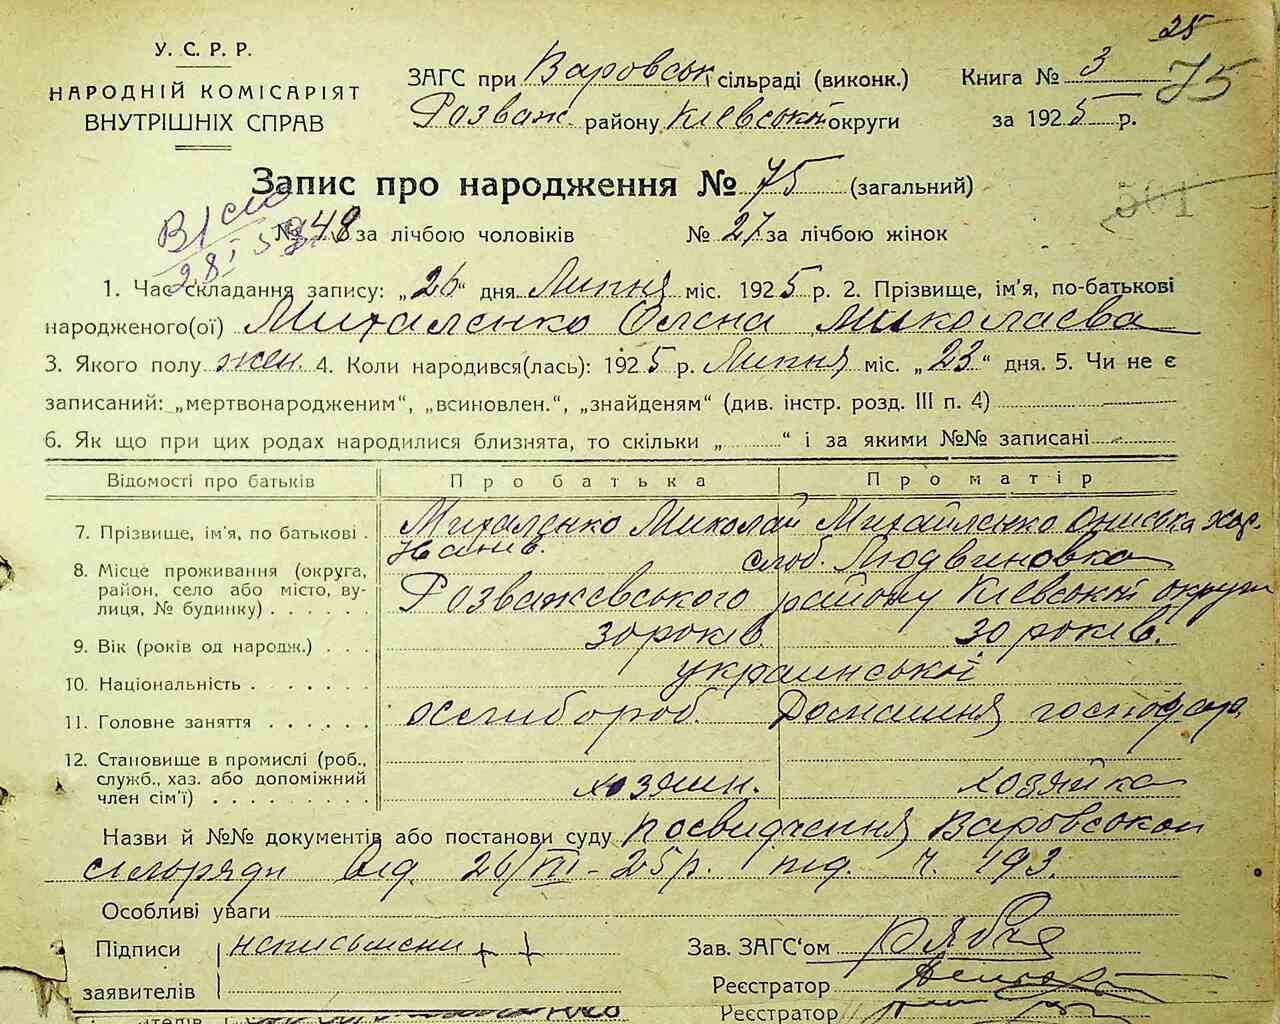 25
У. С. Р. Р.
НАРОДНІЙ КОМІСАРІЯТ
ВНУТРІШНІХ СПРАВ
ЗАГС при Варовськ сільраді (виконк.)
Розваж. району Київської округи
Книга № 3
за 1925 р.
75
Запис про народження № 75 (загальний)
501
№ 48 за лічбою чоловіків № 27 за лічбою жінок
1. Час складання запису: „26“ дня Липня міс. 1925 р. 2. Прізвище, ім'я, по-батькові
народженого(ої) Михаленко Олена Миколаєва
3. Якого полу жен. 4. Коли народився(лась): 1925 р. Липня міс. „23“ дня. 5. Чи не є
записаний: „мертвонародженим“, „всиновлен.“, „знайденям“ (див. інстр. розд. III п. 4)
6. Як що при цих родах народилися близнята, то скільки „ “ і за якими №№ записані
Відомості про батьків Про батька Про матір
7. Прізвище, ім'я, по батькові . Михаленко Миколай Михайленко Ониська
слоб. Людвиновка
8. Місце проживання (округа,
район, село або місто, ву-
лиця, № будинку) . . . . . . Розважевського району Киевськой округи
9. Вік (років од народж.) . . . 30 років. 30 років.
10. Національність . . . . . . . украинськой
11. Головне заняття . . . . . . хлибороб. Домашня господар.
12. Становище в промислі (роб.,
служб., хаз. або допоміжний
член сім'ї) . . . . . . . . . хозяин. хозяйка
Назви й №№ документів або постанови суду посвидчення Варовськой
сільради від 26/VII - 25 р. під. ч. 193.
Особливі уваги
Підписи неписьменн + +
заявителів
Зав. ЗАГС'ом
Реєстратор
Реєстратор